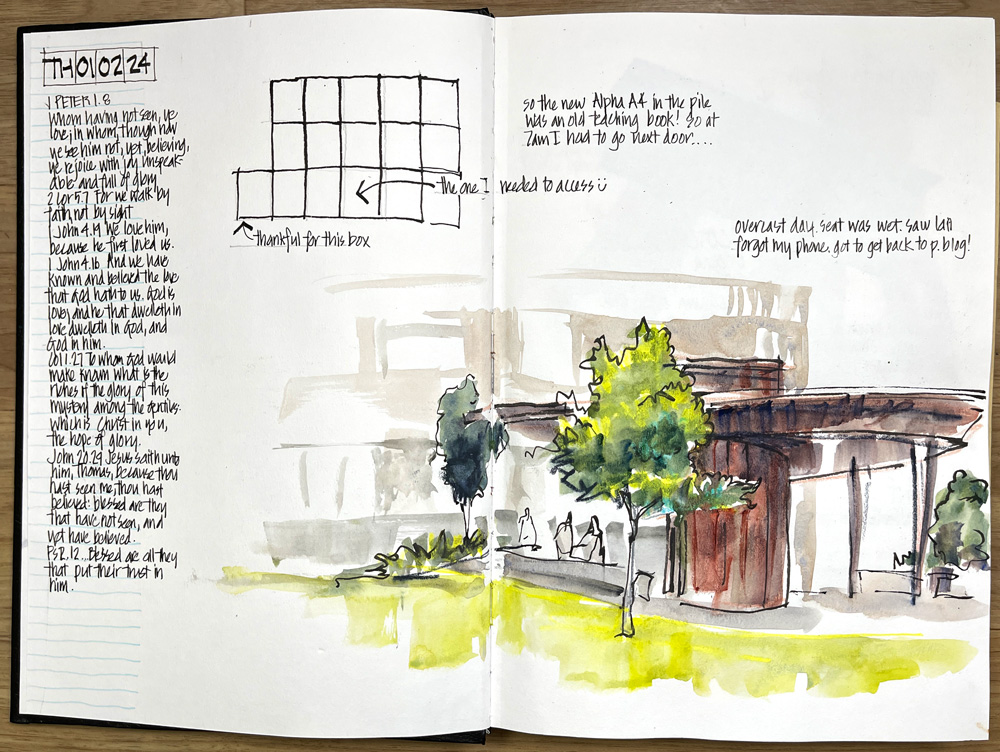 TH 01 02 24
1 PETER 1.8
Whom having not seen, ye
love; in whom, though now
ye see him not, yet, believing,
ye rejoice with joy unspeak-
able and full of glory
2 Cor 5.7 For we walk by
faith, not by sight
1 John 4.19 We love him,
because he first loved us.
1 John 4.16. And we have
known and believed the love
that God hath to us. God is
love; and he that dwelleth in
love dwelleth in God, and
God in him.
Col 1.27 To whom God would
make known what is the
riches of the glory of this
mystery among the gentiles:
which is Christ in you,
the hope of glory.
John 20.29 Jesus saith unto
him, Thomas, because thou
hast seen me, thou hast
believed: blessed are they
that have not seen, and
yet have believed.
Ps 2.12... Blessed are all they
that put their trust in
him.
the one I needed to access
thankful for this box
so the new Alpha A4 in the pile
was an old teaching book! So at
7am I had to go next door....
overcast day. seat was wet. saw
forgot my phone. got to get back to p. blog!